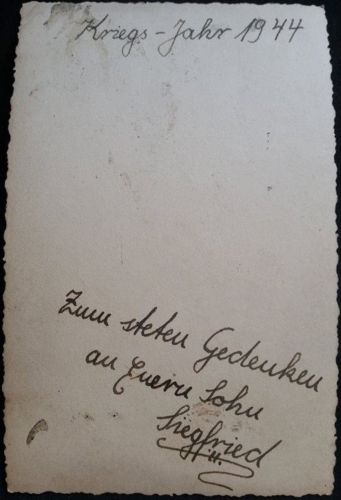 Kriegs-Jahr 1944
Zum steten Gedenken
an Euern Sohn
Siegfried